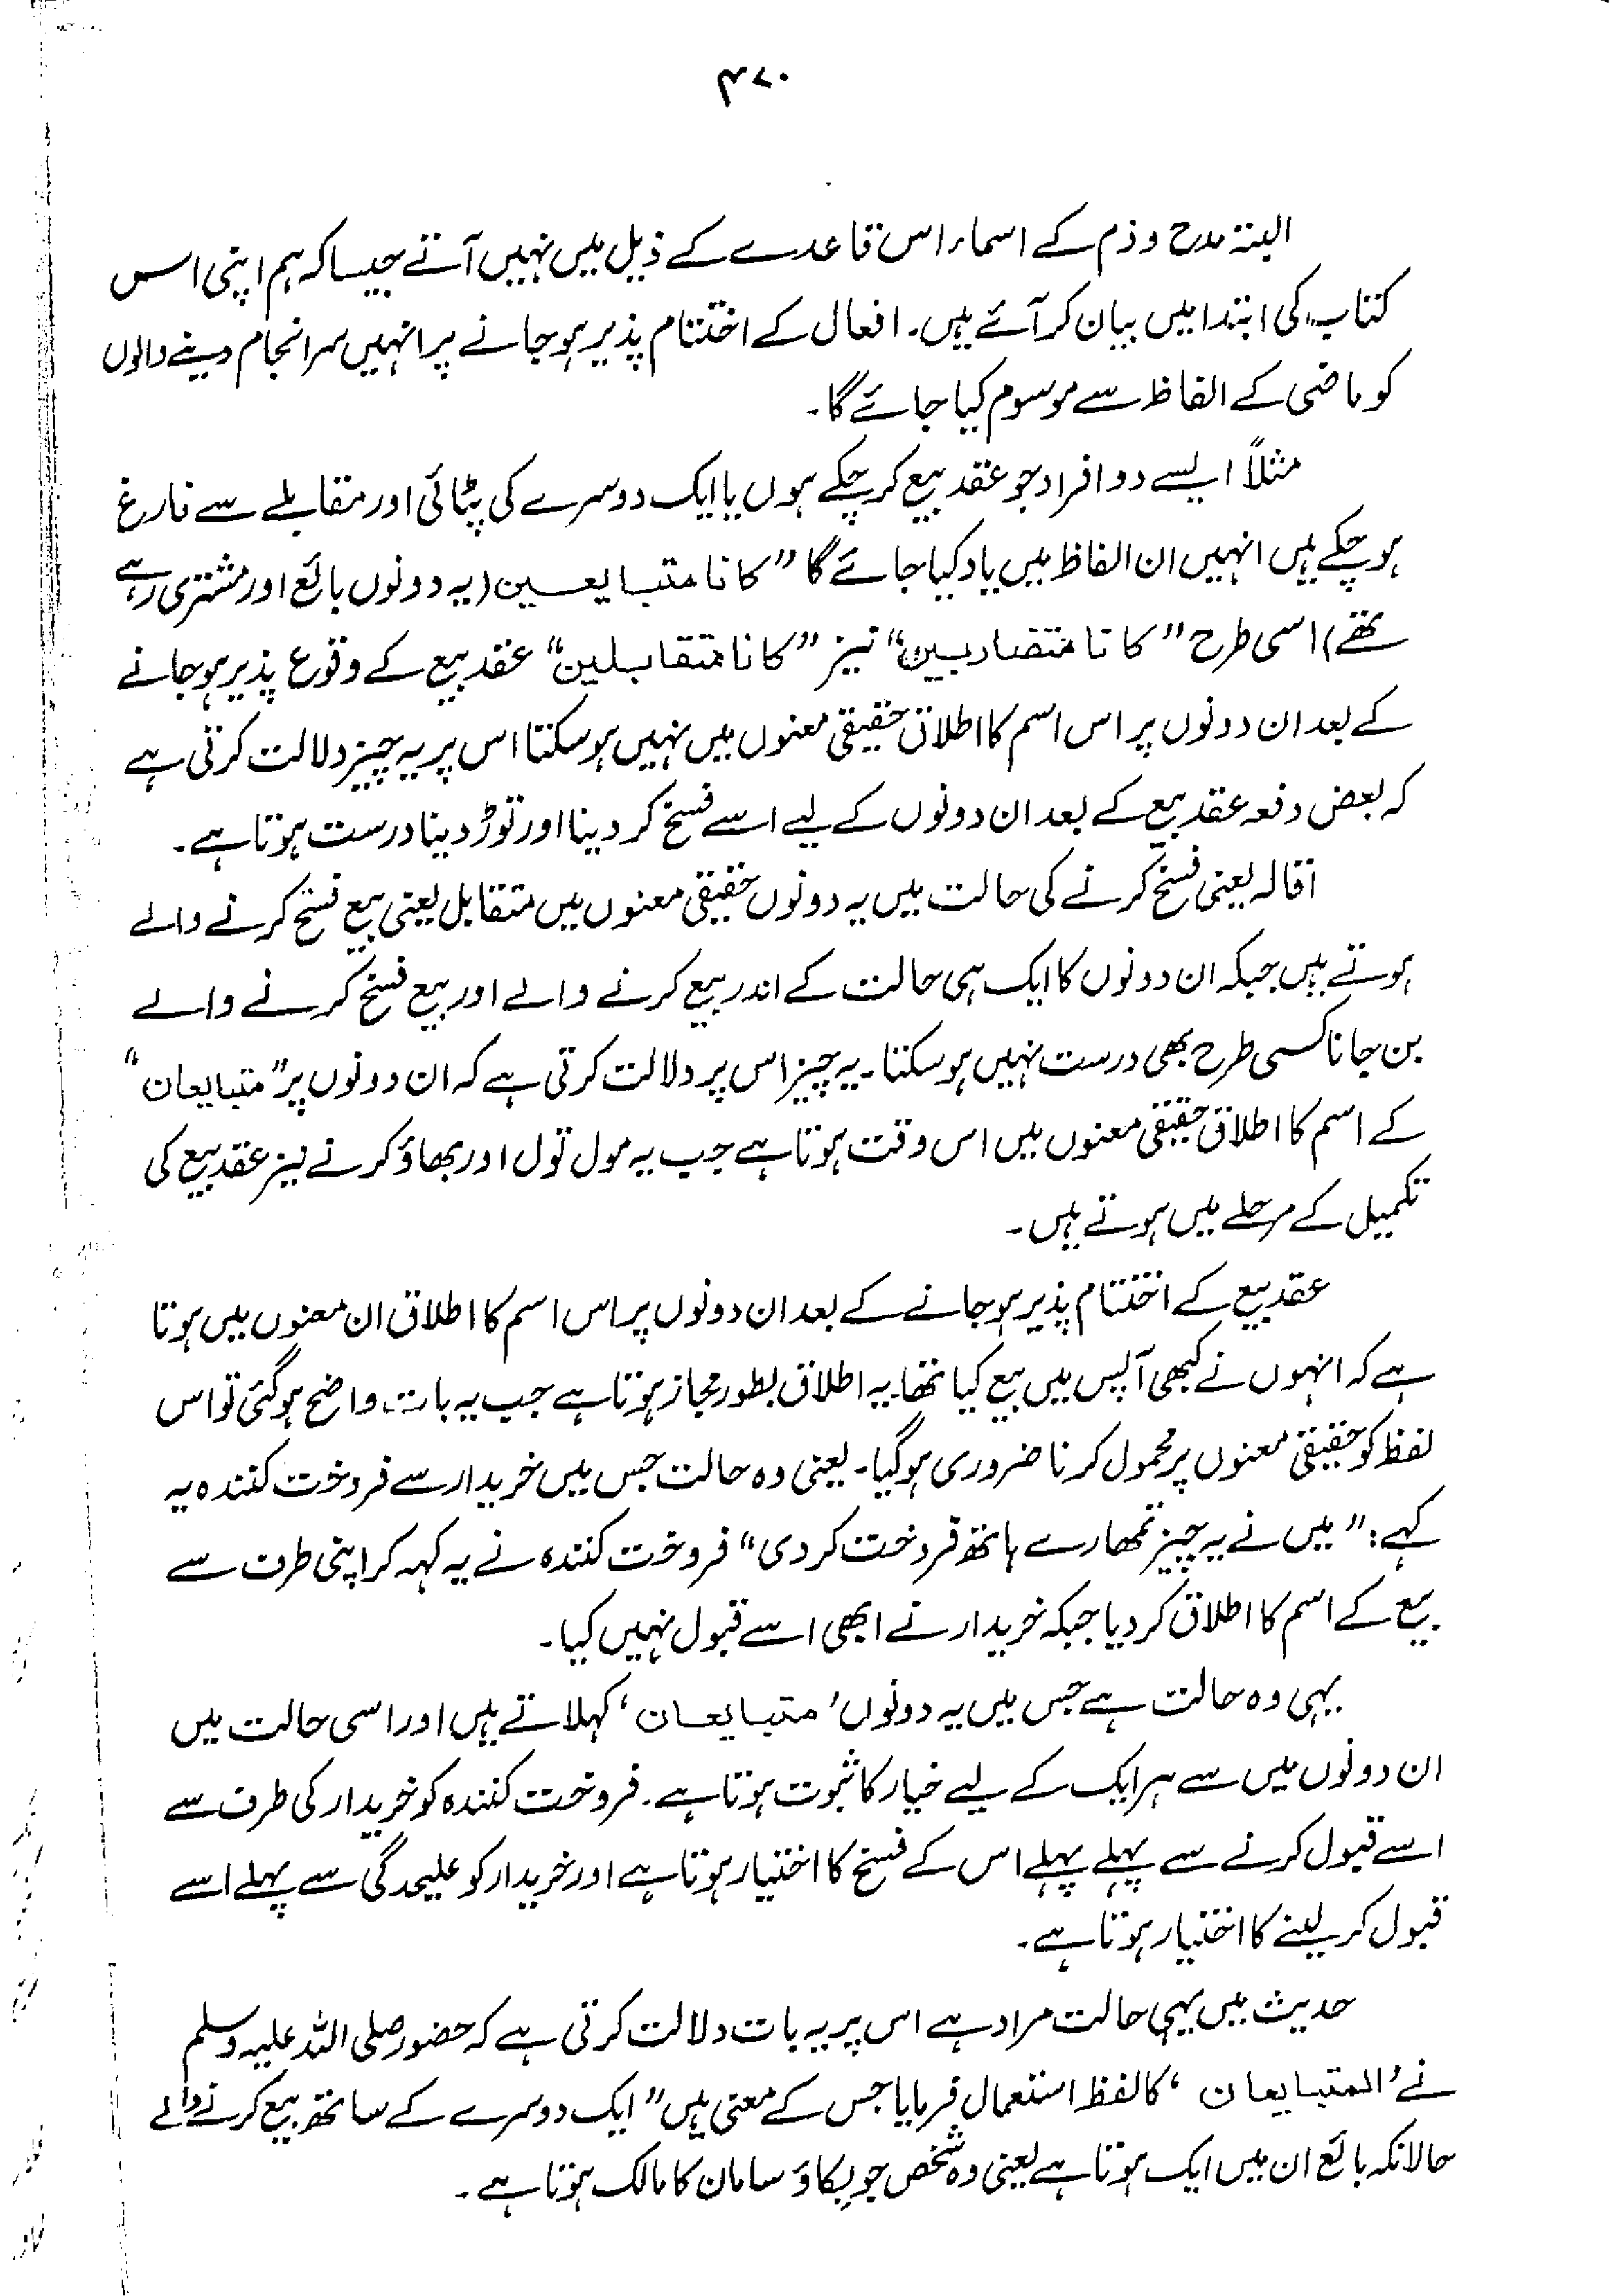 ۴۷۰
البتہ مدح و ذم کے اسماء اس قاعدے کے ذیل میں نہیں آتے جیسا کہ ہم اپنی اس
کتاب کی ابتدا میں بیان کر آئے ہیں۔ افعال کے اختتام پذیر ہوجانے پر انہیں سرانجام دینے والوں
کو ماضی کے الفاظ سے موسوم کیا جائے گا۔
مثلاً ایسے دو افراد جو عقد بیع کر چکے ہوں یا ایک دوسرے کی پٹائی اور مقابلے سے فارغ
ہوچکے ہیں انہیں ان الفاظ میں یاد کیا جائے گا ”کانا متبایعین (یہ دونوں بائع اور مشتری رہے
تھے) اسی طرح ”کانا متضاربین“ نیز ”کانا متقابلین“ عقد بیع کے وقوع پذیر ہوجانے
کے بعد ان دونوں پر اس اسم کا اطلاق حقیقی معنوں میں نہیں ہوسکتا اس پر یہ چیز دلالت کرتی ہے
کہ بعض دفعہ عقد بیع کے بعد ان دونوں کے لیے اسے فسخ کر دینا اور توڑ دینا درست ہوتا ہے۔
اقالہ یعنی فسخ کرنے کی حالت میں یہ دونوں حقیقی معنوں میں متقابل یعنی بیع فسخ کرنے والے
ہوتے ہیں جبکہ ان دونوں کا ایک ہی حالت کے اندر بیع کرنے والے اور بیع فسخ کرنے والے
بن جانا کسی طرح بھی درست نہیں ہوسکتا۔ یہ چیز اس پر دلالت کرتی ہے کہ ان دونوں پر ”متبایعان“
کے اسم کا اطلاق حقیقی معنوں میں اس وقت ہوتا ہے جب یہ مول تول اور بھاؤ کرنے نیز عقد بیع کی
تکمیل کے مرحلے میں ہوتے ہیں۔
عقد بیع کے اختتام پذیر ہوجانے کے بعد ان دونوں پر اس اسم کا اطلاق ان معنوں میں ہوتا
ہے کہ انہوں نے کبھی آپس میں بیع کیا تھا۔ یہ اطلاق بطور مجاز ہوتا ہے جب یہ بات واضح ہوگئی تو اس
لفظ کو حقیقی معنوں پر محمول کرنا ضروری ہوگیا۔ یعنی وہ حالت جس میں خریدار سے فروخت کنندہ یہ
کہے: ”میں نے یہ چیز تمھارے ہاتھ فروخت کردی“ فروخت کنندہ نے یہ کہہ کر اپنی طرف سے
بیع کے اسم کا اطلاق کردیا جبکہ خریدار نے ابھی اسے قبول نہیں کیا۔
یہی وہ حالت ہے جس میں یہ دونوں ’متبایعان‘ کہلاتے ہیں اور اسی حالت میں
ان دونوں میں سے ہر ایک کے لیے خیار کا ثبوت ہوتا ہے۔ فروخت کنندہ کو خریدار کی طرف سے
اسے قبول کرنے سے پہلے پہلے اس کے فسخ کا اختیار ہوتا ہے اور خریدار کو علیحدگی سے پہلے اسے
قبول کرلینے کا اختیار ہوتا ہے۔
حدیث میں یہی حالت مراد ہے اس پر یہ بات دلالت کرتی ہے کہ حضور صلی اللہ علیہ وسلم
نے ’المتبایعان‘ کا لفظ استعمال فرمایا جس کے معنی ہیں ”ایک دوسرے کے ساتھ بیع کرنے والے
حالانکہ بائع ان میں ایک ہوتا ہے یعنی وہ شخص جو بِکاؤ سامان کا مالک ہوتا ہے۔